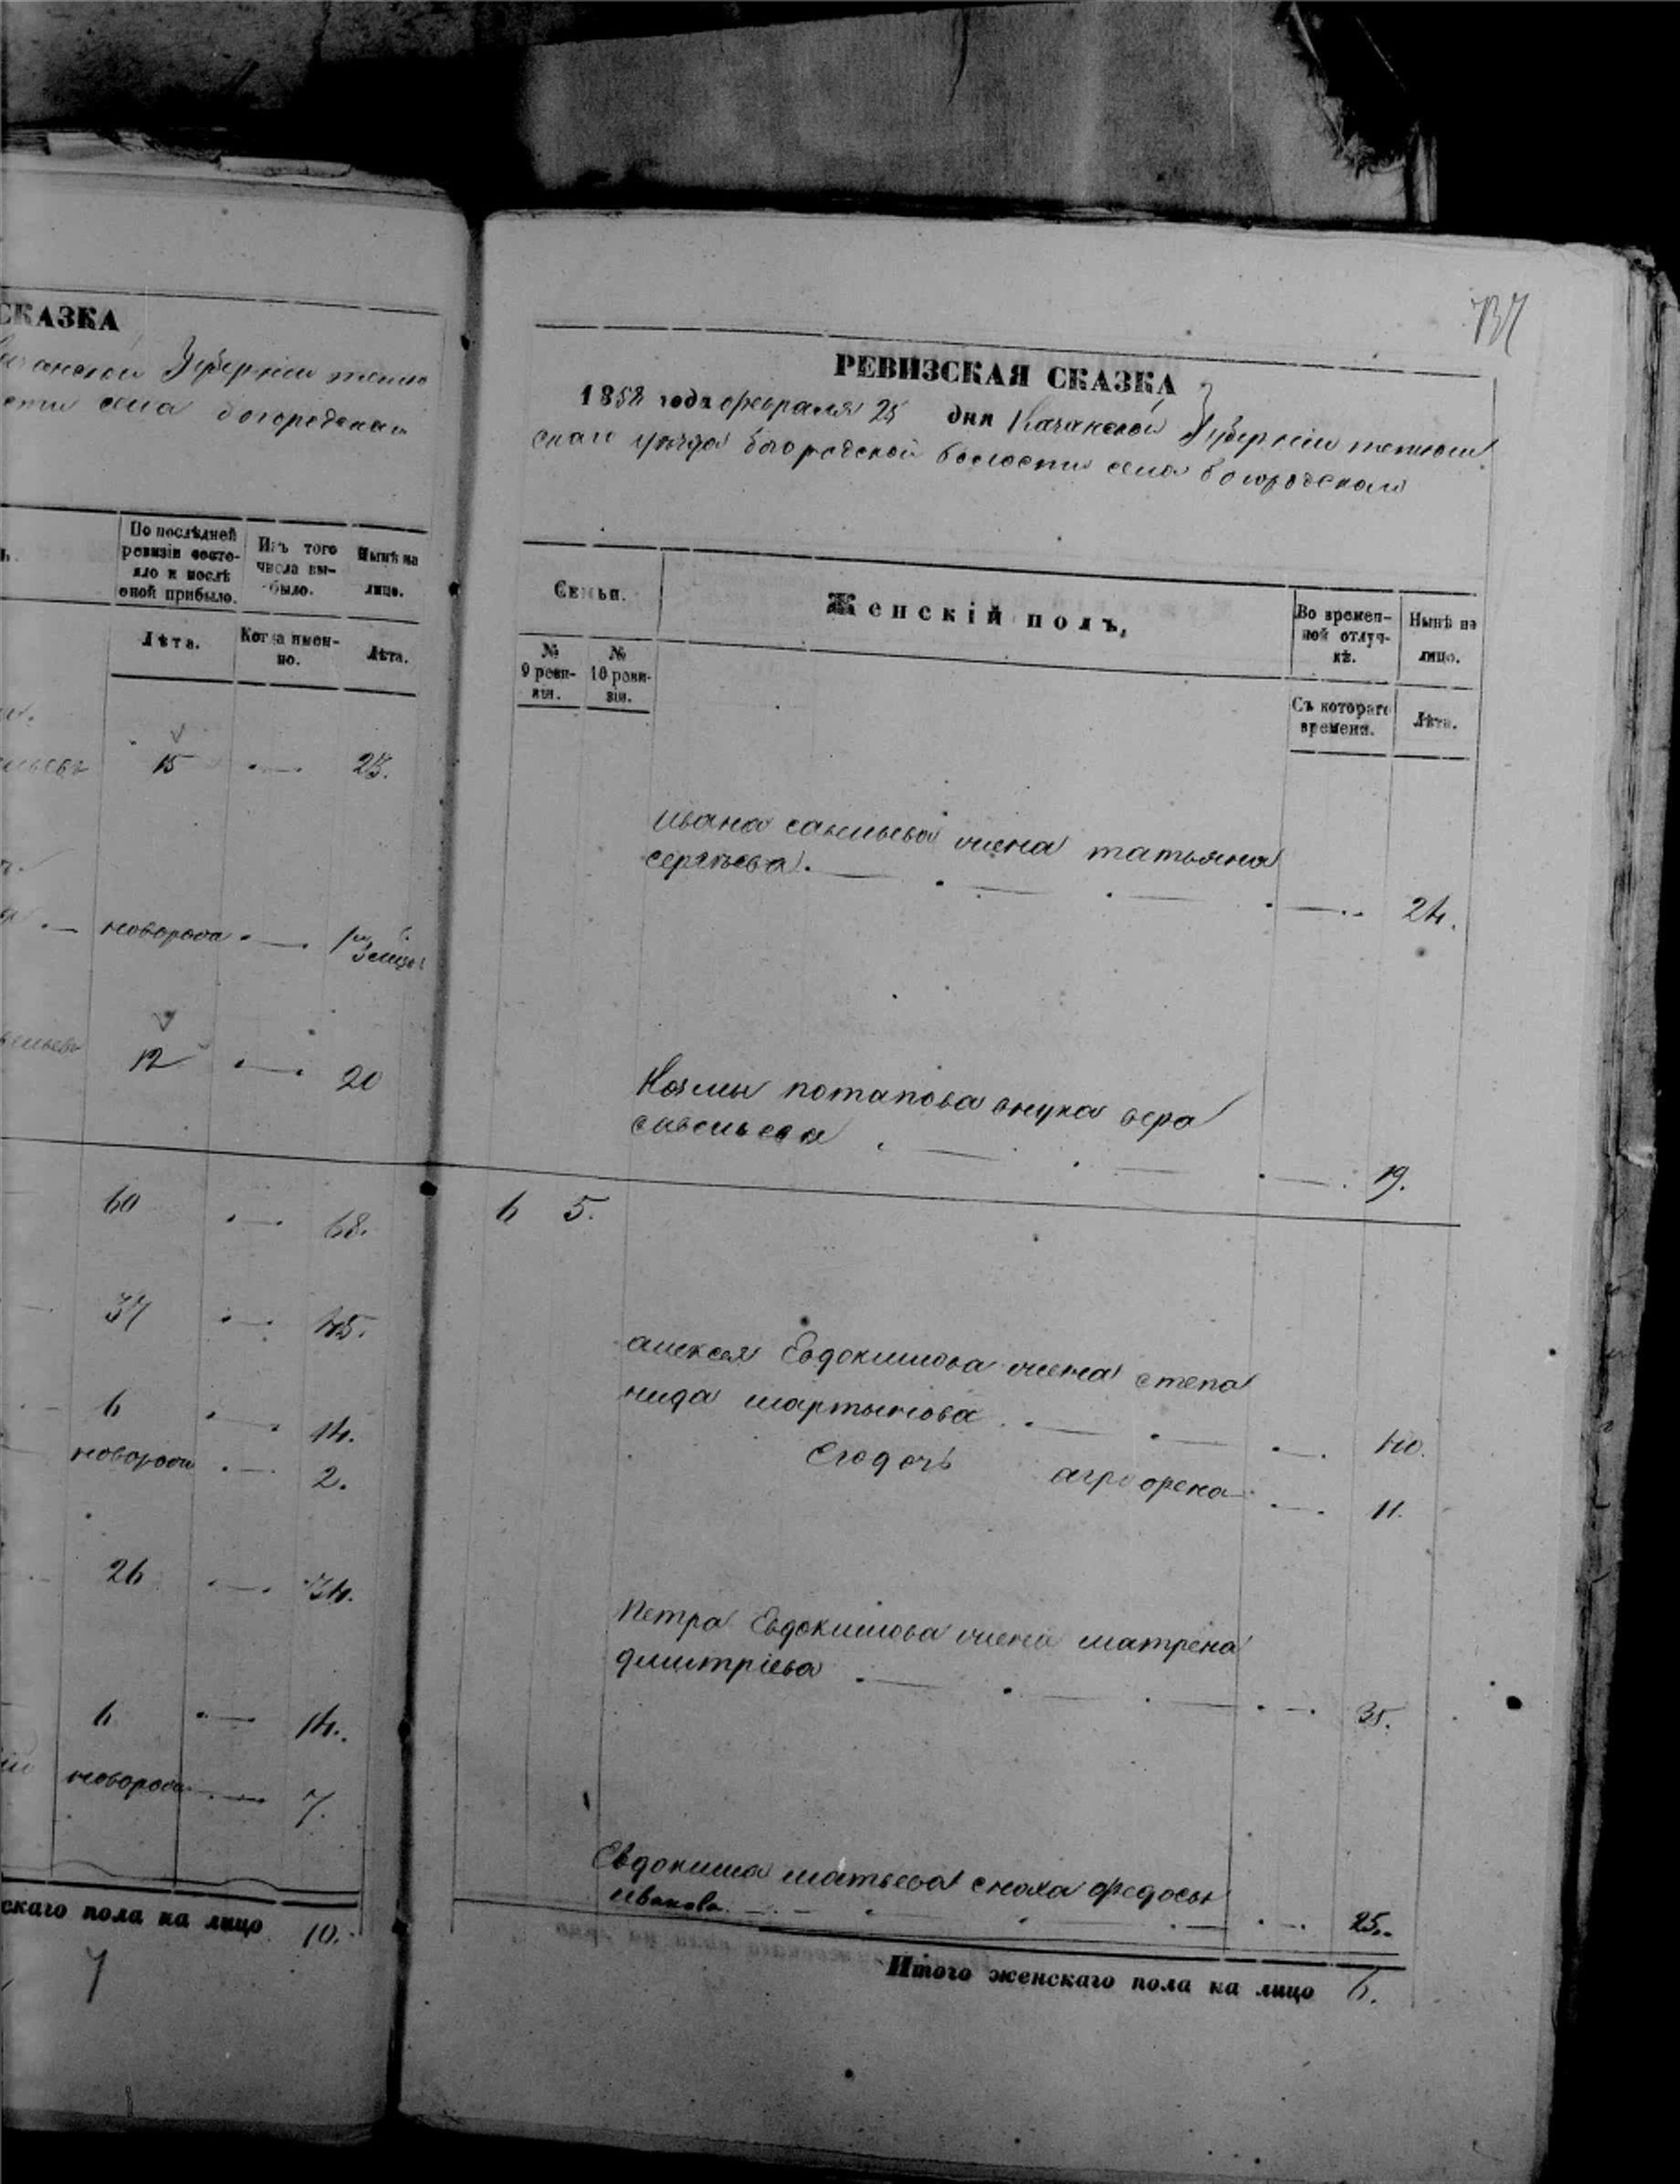 СКАЗКА
Губерніи тетю
сти села богородскаго
По послѣдней
ревизіи состо-
яло и послѣ
оной прибыло.
Изъ того
числа вы-
было.
Нынѣ на
лицо.
Лѣта.
Когда имен-
но.
Лѣта.
15 23.
новорож
12 20
60 68.
37 45.
6 14.
новорож 2.
26 34.
6 14.
новорож 7.
скаго пола на лицо 10.
7
737
РЕВИЗСКАЯ СКАЗКА
1858 года февраля 25 дня Казанской Губерніи тетюш
скаго уѣзда богородской волости села богородскаго
Семьи.
Женскій полъ,
Во времен-
ной отлуч-
кѣ.
Нынѣ на
лицо.
№
9 реви-
зіи.
№
10 реви-
зіи.
Съ котораго
времени.
Лѣта.
ивана савельева жена татьяна
сергѣева. 24.
Козмы потапова внука вера
савельева 19.
6 5.
алексея Евдокимова жена степа
нида мартынова 40.
Его дочь агрофена 11.
Петра Евдокимова жена матрена
дмитріева 35.
Евдокима матвева сноха федосья
иванова 25.
Итого женскаго пола на лицо 6.